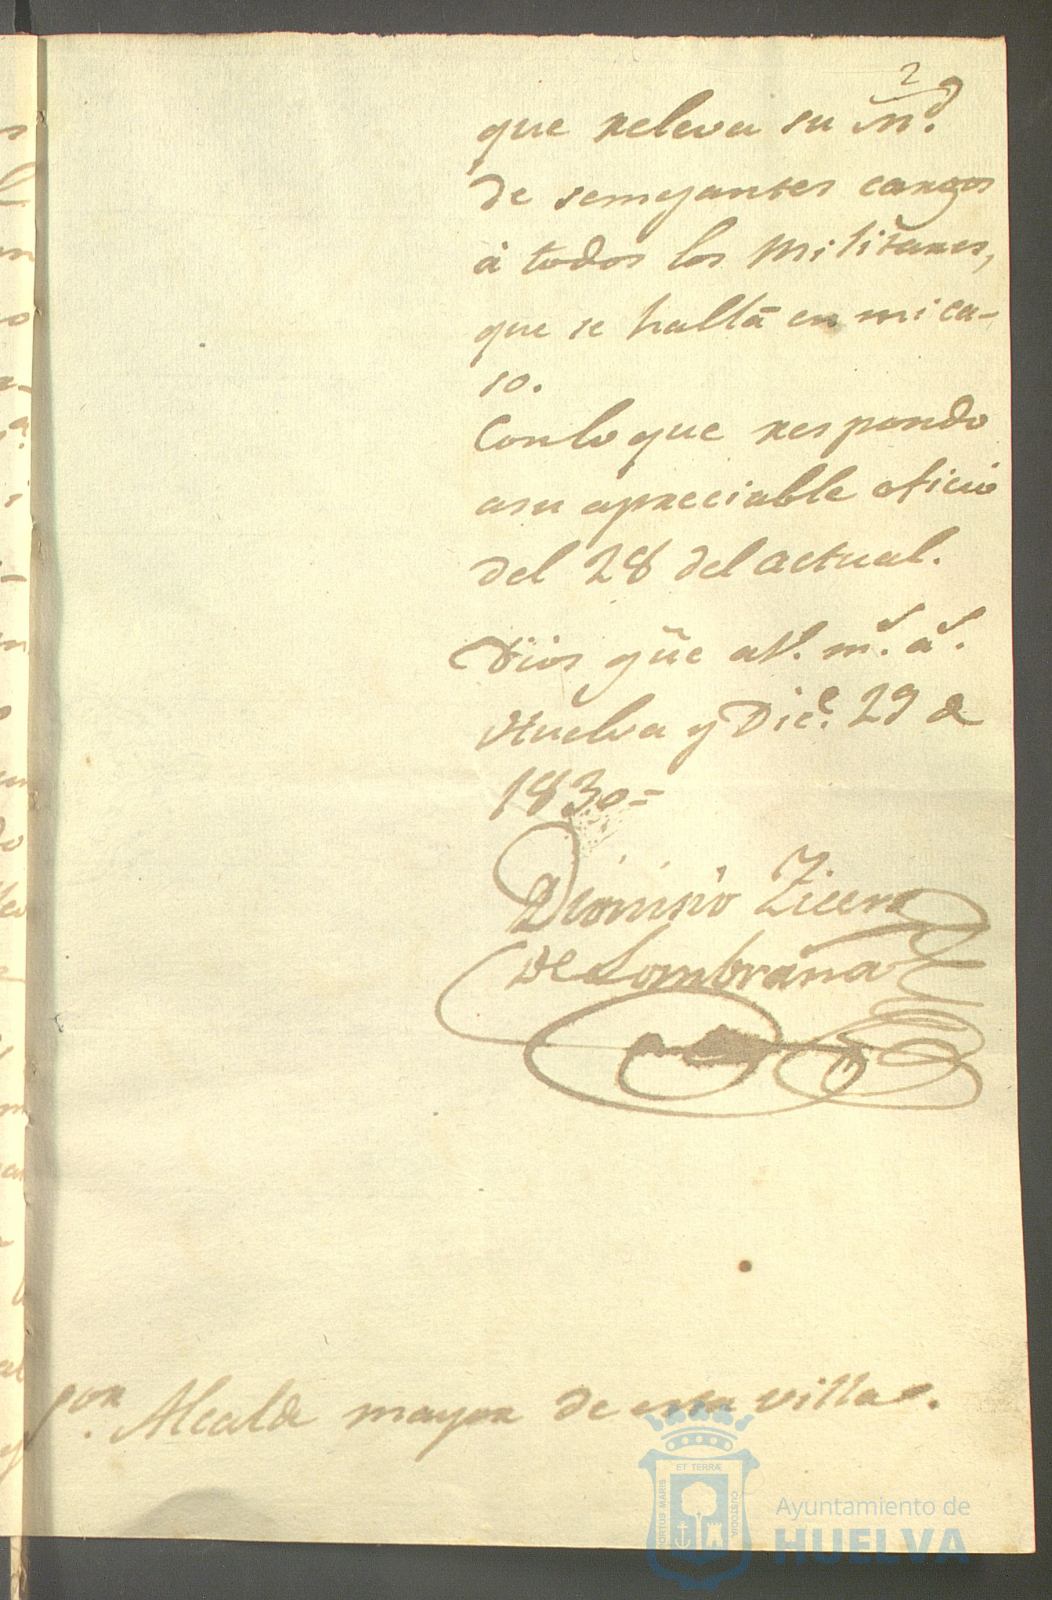 2
que releva su M.d
de semejantes cargos
à todos los Militares,
que se hallā en mi ca-
so.
Con lo que respondo
a su apreciable oficio
del 28 del actual.
Dios gūe a V. m.s a.s
Huelva y Dic.e 29 de
1830=
Dionisio
de Lombraña
S.or Alcalde mayor de esta villa.
ET TERRÆ
PORTUS MARIS
CUSTODIA
Ayuntamiento de
HUELVA